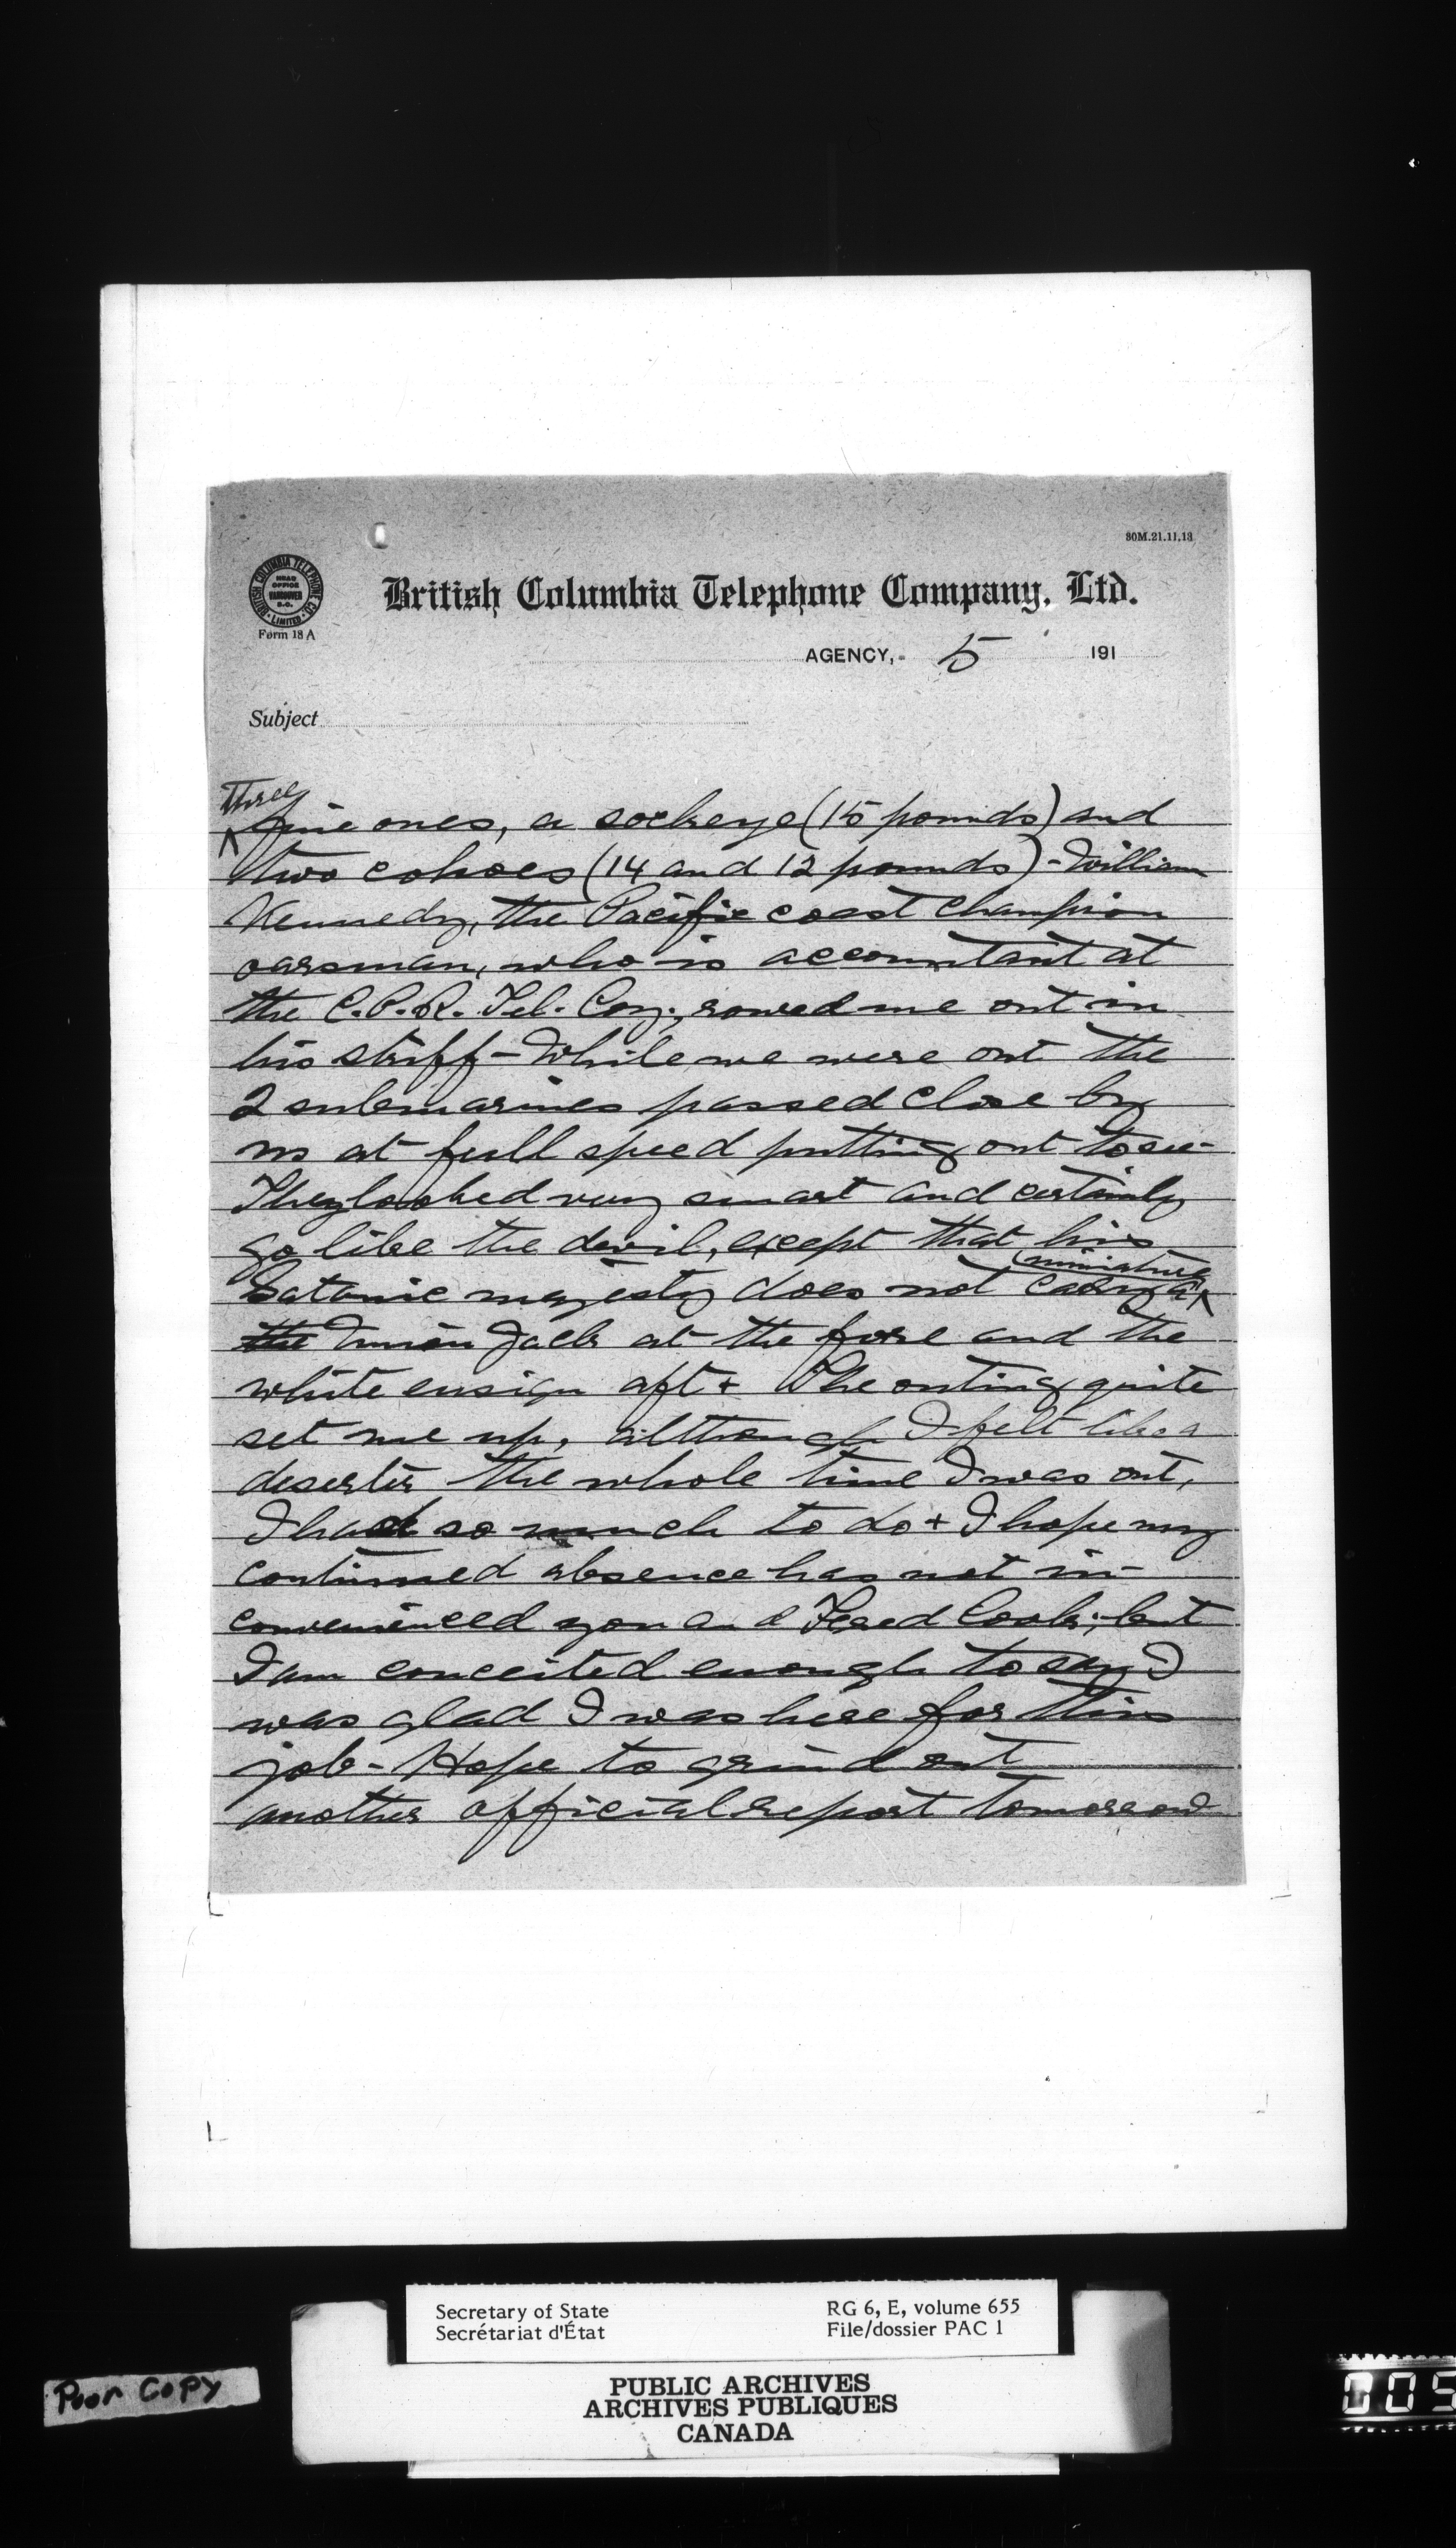 30M.21.11.13
BRITISH COLUMBIA TELEPHONE CO. LIMITED
HEAD OFFICE VANCOUVER B.C.
Form 18 A
British Columbia Telephone Company, Ltd.
AGENCY, 5 191
Subject
three
fine ones, a sockeye (15 pounds) and
two cohoes (14 and 12 pounds) - William
Kennedy, the Pacific coast champion
oarsman, who is accountant at
the C.P.R. Tel. Coy., rowed me out in
his skiff - While we were out the
2 submarines passed close by
us at full speed putting out to sea -
They looked very smart and certainly
go like the devil, except that his
miniature
Satanic majesty does not carry a
the Union Jack at the fore and the
white ensign aft + The outing quite
set me up, although I felt like a
deserter the whole time I was out,
I had so much to do + I hope my
continued absence has not in-
convenienced you and Fred Cook; but
I am conceited enough to say I
was glad I was here for this
job - Hope to grind out
another official report tomorrow
Secretary of State
Secrétariat d'État
RG 6, E, volume 655
File/dossier PAC 1
Poor Copy
PUBLIC ARCHIVES
ARCHIVES PUBLIQUES
CANADA
005